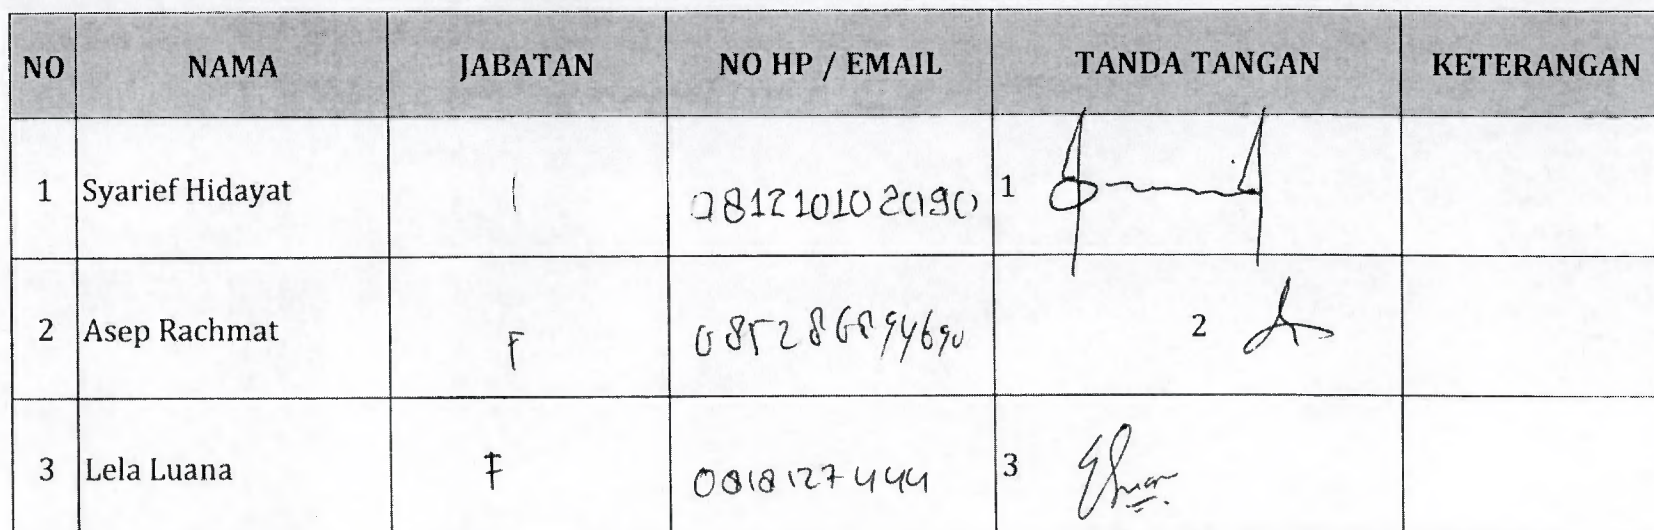 NO NAMA JABATAN NO HP / EMAIL TANDA TANGAN KETERANGAN
1 Syarief Hidayat 081210102090 1
2 Asep Rachmat F 2
3 Lela Luana F 0818127444 3